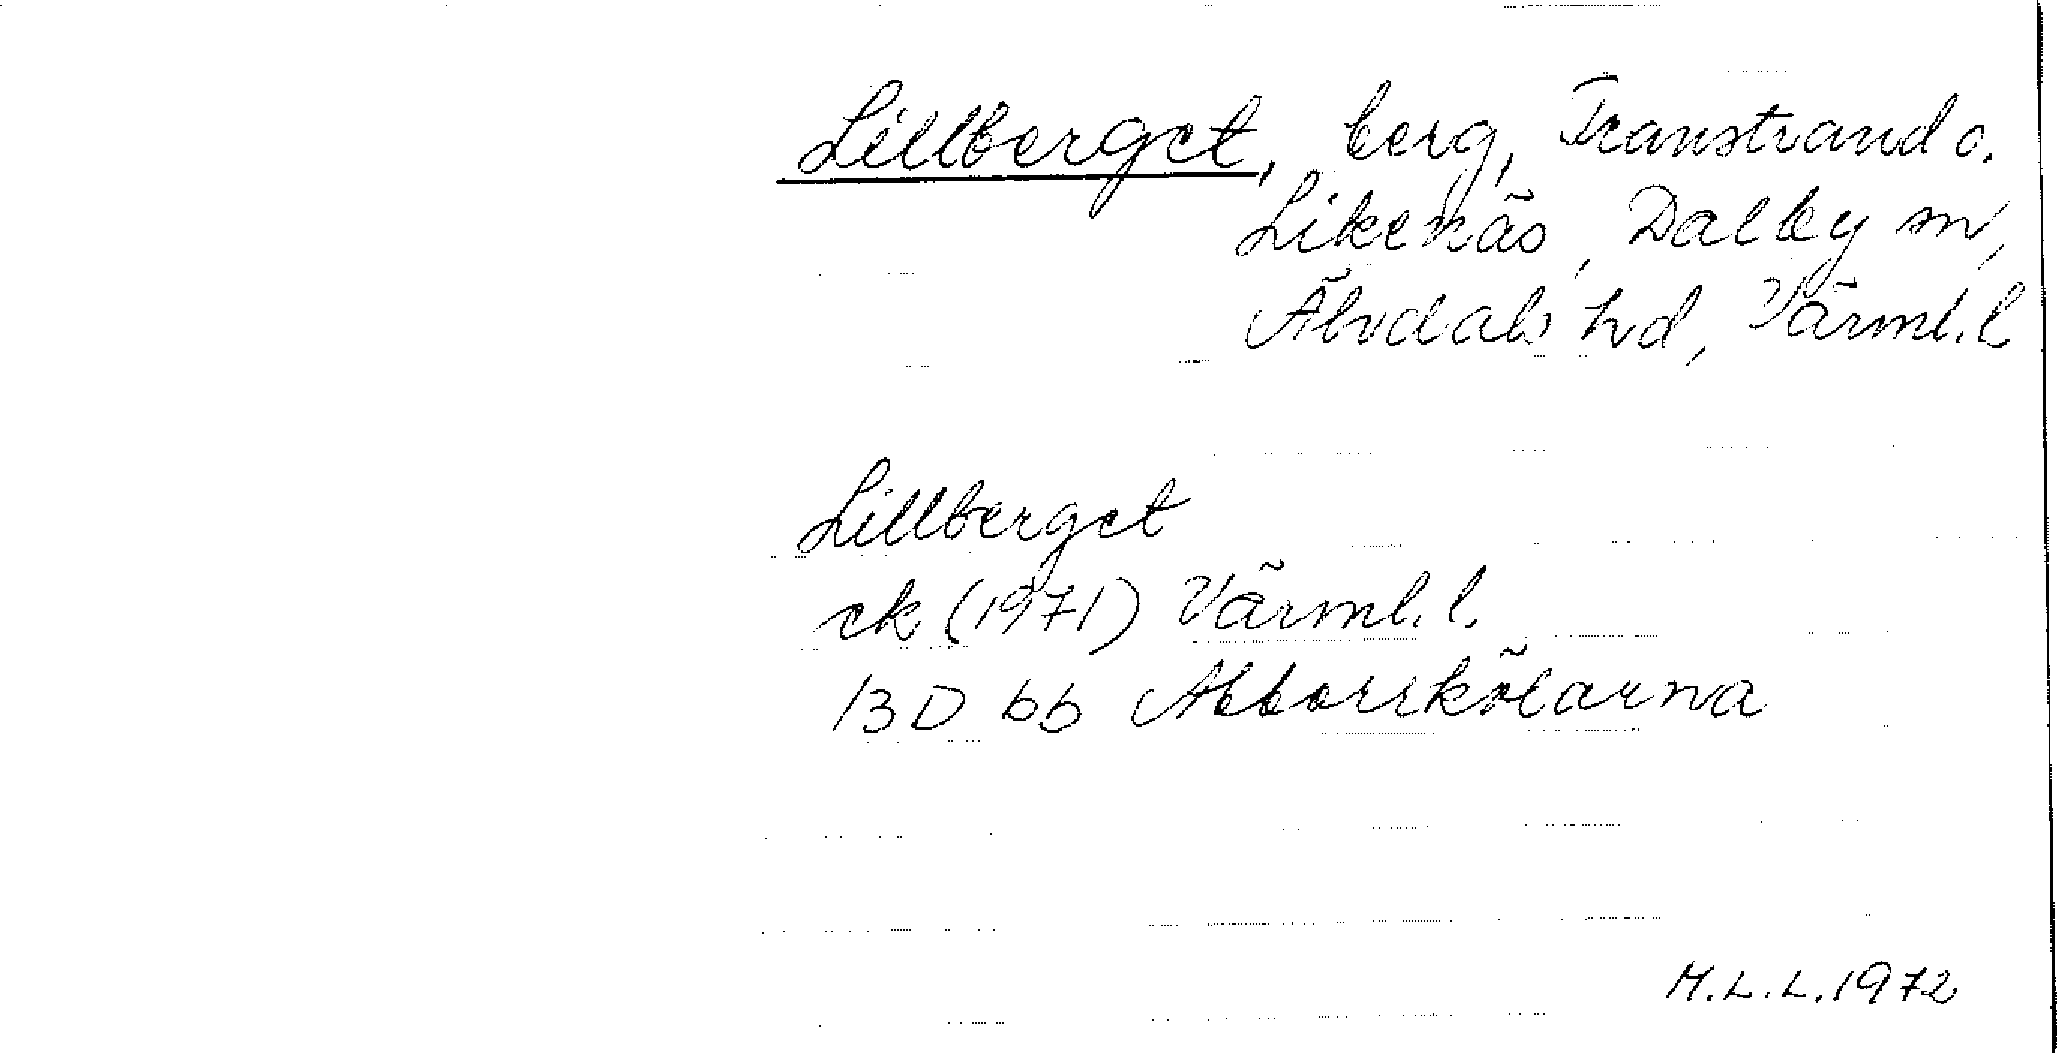 Lillberget, berg, Transtrand o.
Likenäs, Dalby sn,
Älvdals hd, Värml. l
Lillberget
ek (1971) Värml. l.
13 D bb Abborrkölarna
M.L.L. 1972